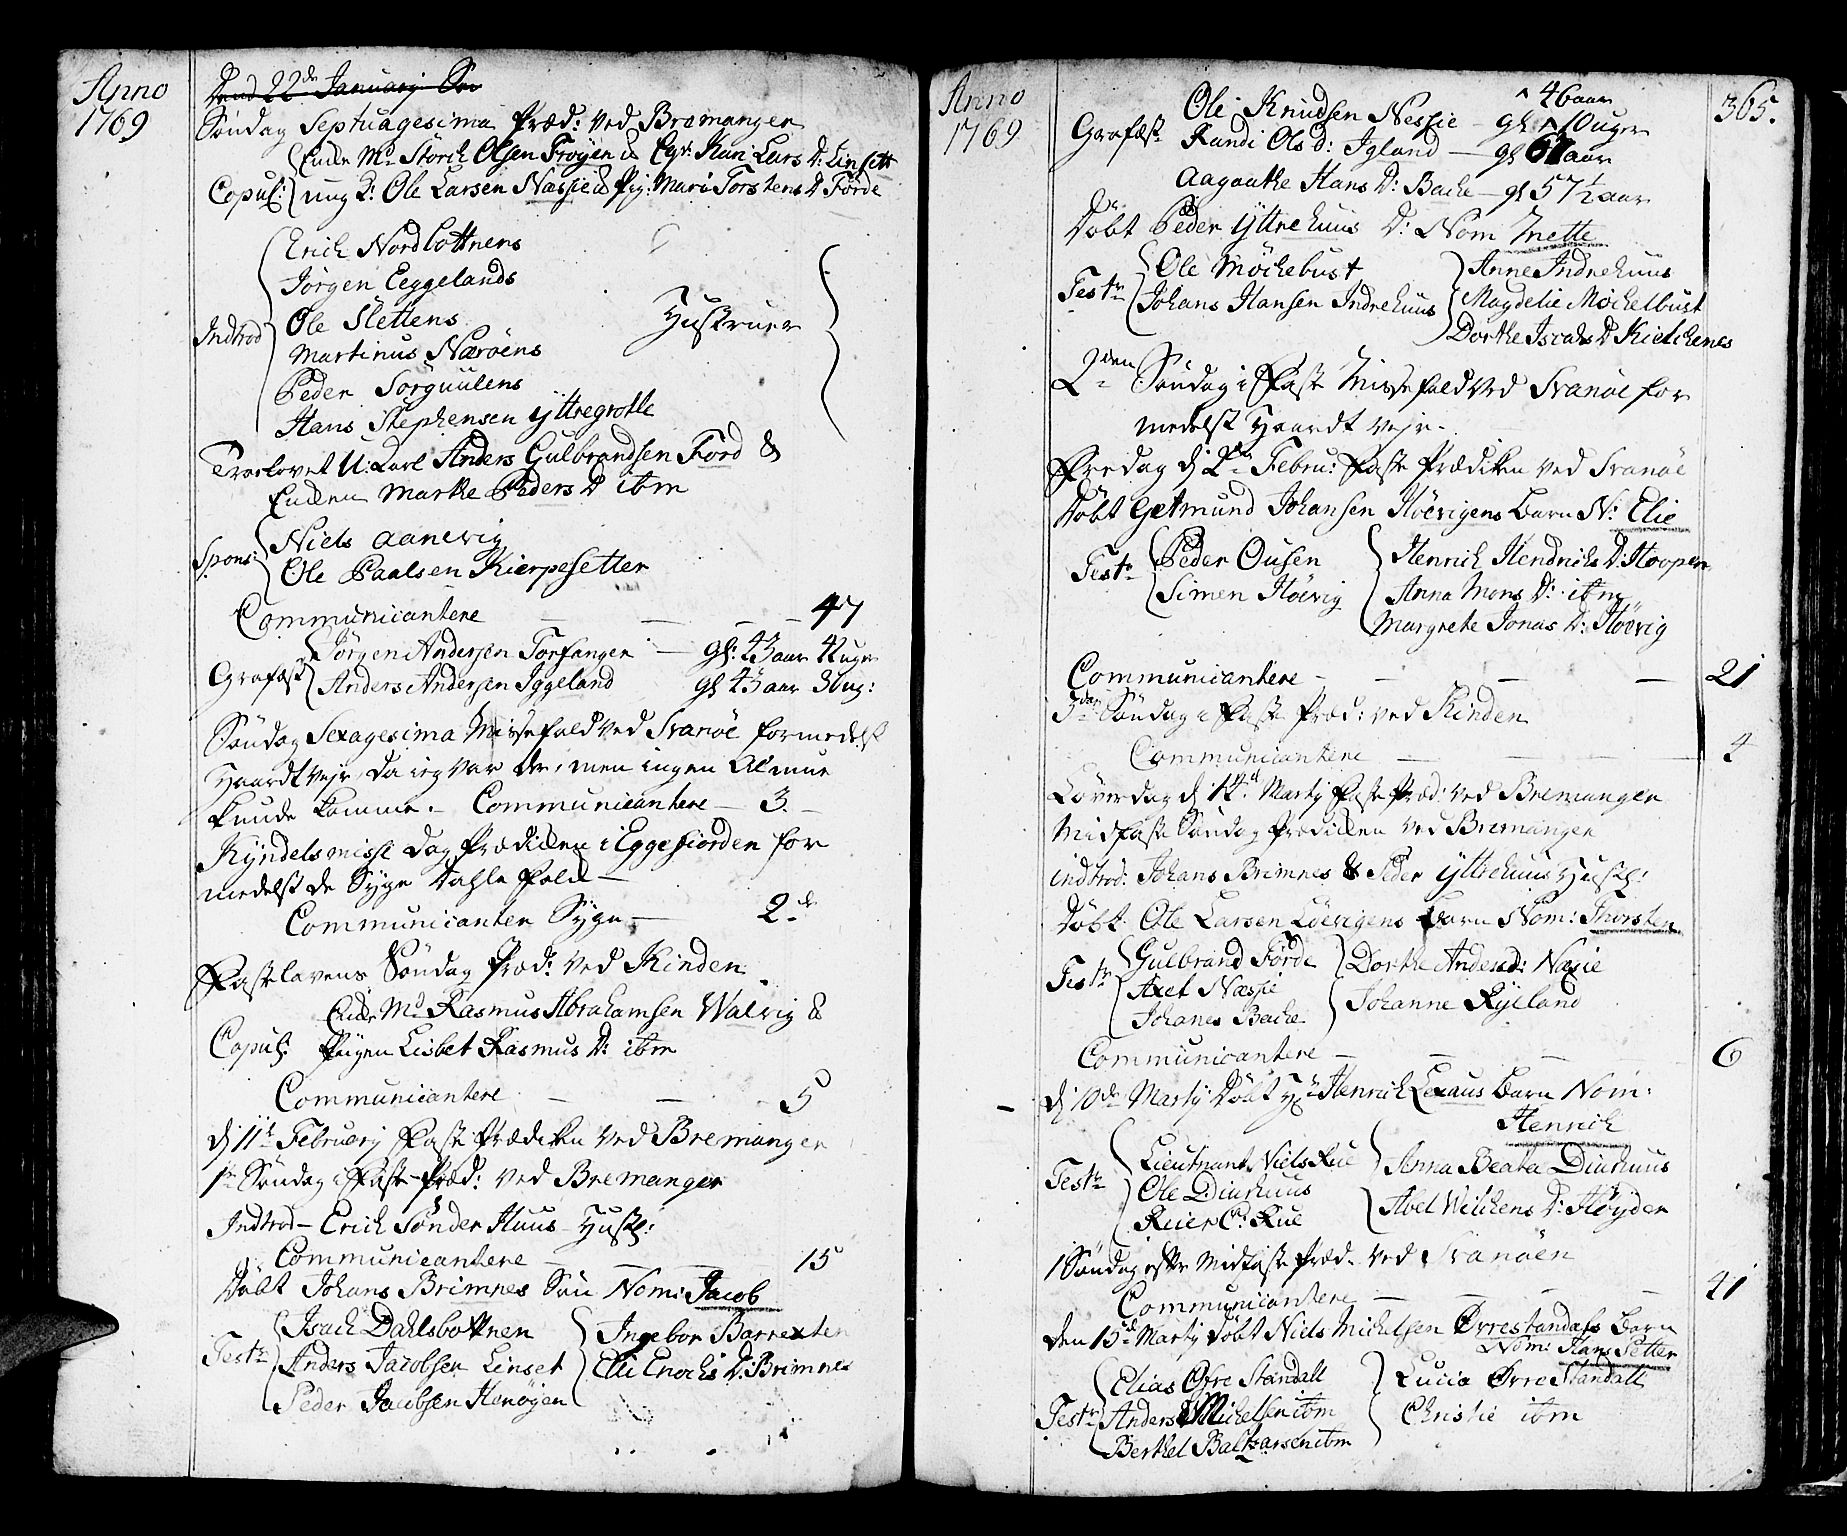 Anno
1769
Dend 22de January
Søndag Septuagesima Præd: ved Bremanger
Copul: Enke Md Størck Olsen Frøyen & Kari Lars D: Linset
ung K: Ole Larsen Næssie & Pig: Mari Torstens D Førde
Indtrod
Erich Nordbottnens
Jørgen Eeggelands
Ole Slettens
Martinus Nærøens
Peder Sørguulens
Hans Stephensen Yttregrotle
Hustruer
Trorlovet U: Karl Anders Gulbrandsen Førd &
Enken Marthe Peders D ibm
Spons:
Niels Aanevig
Ole Paalsen Kierpesetter
Communicantere 47
Grafæst
Jørgen Andersen Torfanger gl: 43 aar 42 ugr
Anders Andersen Iggeland gl 43 aar 3 ug:
Søndag Sexagesima Missefald ved Svanøe formedelst
Haardt vejr, da jeg var der, men ingen Almue
kunde komme. Communicantere 3
Kyndelsmisse Dag Prædicken i Eggefiorden for
medelst de Syge Dahle Folk
Communicanter Syge 2de
Fastelavens Søndag Præd: ved Kinden
Enke Md Rasmus Abrahamsen Walvig &
Copul: Pigen Lisbet Rasmus D: ibm
Communicantere 5
d 11te February Faste Prædiken ved Bremanger
1te Søndag i Faste Præd: ved Bremanger
Indtrod Erich Sønder Huus Hust:
Communicantere 15
Døbt Johans Brimnes Søn Nom: Jacob
Test:
Isach Dahlsbottnen
Anders Jacobsen Linset
Peder Jacobsen Henøyen
Ingebor Barrexten
Elli Enochs D: Brimnes
Anno
1769
365.
Grafæst
Ole Knudsen Nessie gl 46 aar 10 ugr
Randi Ols D: Igland gl 67 aar
Aagaathe Hans D: Bache gl 57½ aar
Døbt Peder Yttrehuus D: Nom Mette
Testr
Ole Møckebust
Johans Hansen Indrehuus
Anne Indrehuus
Magdelie Møckelbust
Dorthe Isachs D Kielkenes
2den Søndag i Faste Missefald ved Svanøe for
medelst Haardt vejr.
Fredag d 2de Febru: Faste Prædicken ved Svanøe
Døbt Getmund Johansen Høevigens Barn N: Elie
Testr
Peder Ousen
Simen Høevig
Henrich Hendrichs D: Hoopen
Anna Mons D: ibm
Margrete Jonas D: Høevig
Communicantere 21
3die Søndag i Faste Præd: ved Kinden
Communicantere 4
Løverdag d 14d Marty Faste Præd: ved Bremanger
Midfaste Søndag Prædicken ved Bremanger
indtrod: Johans Brimnes & Peder Yttrehuus Hust:
Døbt Ole Larsen Løevigens Barn Nom: Thorsten
Testr
Gulbrand Førde
Axel Næssie
Johanes Bache
Dorthe Anders D: Næsie
Johanne Rylland
Communicantere 6
d 10de Marty Døbt Hr Henrich Lexaus Barn Nom:
Henrich
Testr
Lieutnant Niels Rue
Ole Diurhuus
Reier C: Rue
Anna Beata Diurhuus
Abel Wilchens D: Høyder
1 Søndag efter Midfaste Præd: ved Svanøen
Communicantere 41
Den 15d Marty Døbt Niels Michelsen Ørrestandals Barn
Nom: Hans Petter
Testr
Elias Øfre Standall
Anders Michelsen ibm
Berthel Baltzarsen ibm
Lucia Ørre Standall
Christie ibm